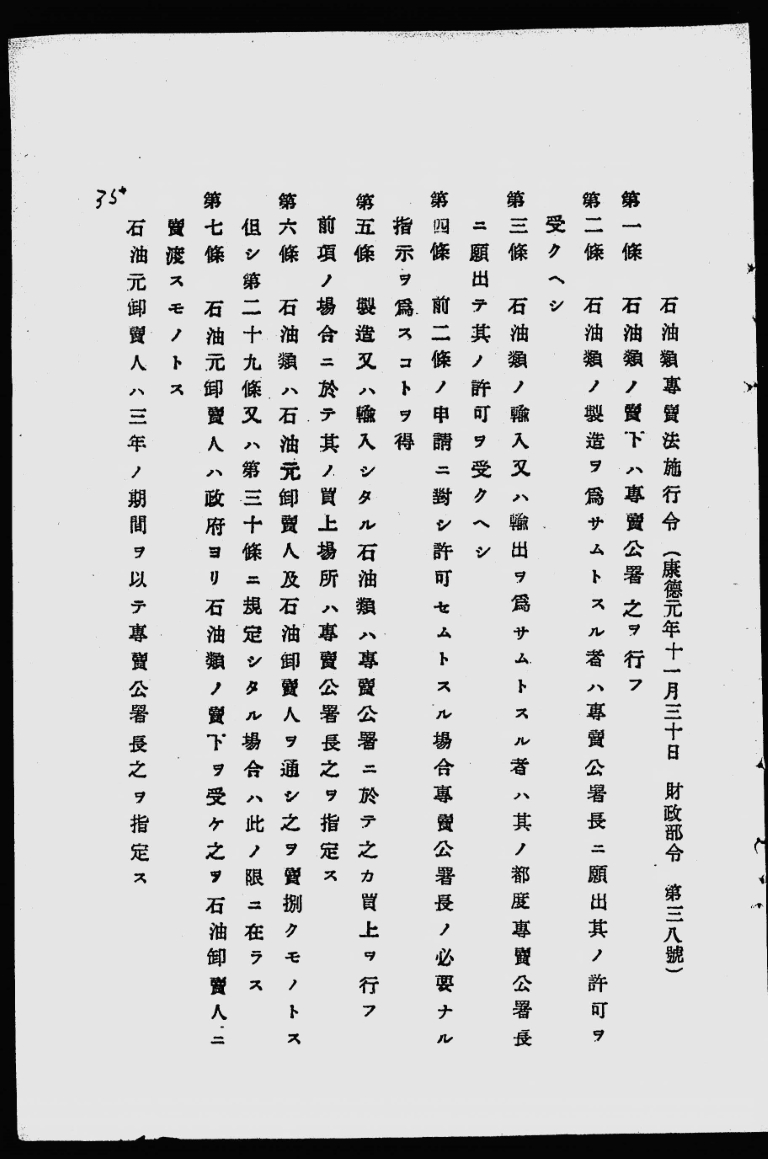 石油類專賣法施行令（康德元年十一月三十日　財政部令　第三八號）
第一條　石油類ノ賣下ハ專賣公署之ヲ行フ
第二條　石油類ノ製造ヲ爲サムトスル者ハ專賣公署長ニ願出其ノ許可ヲ
受クヘシ
第三條　石油類ノ輸入又ハ輸出ヲ爲サムトスル者ハ其ノ都度專賣公署長
ニ願出テ其ノ許可ヲ受クヘシ
第四條　前二條ノ申請ニ對シ許可セムトスル場合專賣公署長ノ必要ナル
指示ヲ爲スコトヲ得
第五條　製造又ハ輸入シタル石油類ハ專賣公署ニ於テ之カ買上ヲ行フ
前項ノ場合ニ於テ其ノ買上場所ハ專賣公署長之ヲ指定ス
第六條　石油類ハ石油元卸賣人及石油卸賣人ヲ通シ之ヲ賣捌クモノトス
但シ第二十九條又ハ第三十條ニ規定シタル場合ハ此ノ限ニ在ラス
第七條　石油元卸賣人ハ政府ヨリ石油類ノ賣下ヲ受ケ之ヲ石油卸賣人ニ
賣渡スモノトス
石油元卸賣人ハ三年ノ期間ヲ以テ專賣公署長之ヲ指定ス